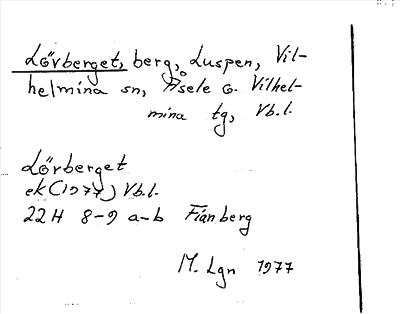 Lövberget, berg, Luspen, Vil-
helmina sn, Åsele o. Vilhel-
mina tg, Vb.l.
Lövberget
ek (1977) Vb.l.
22H 8-9 a-b Fianberg
M. Lgn 1977